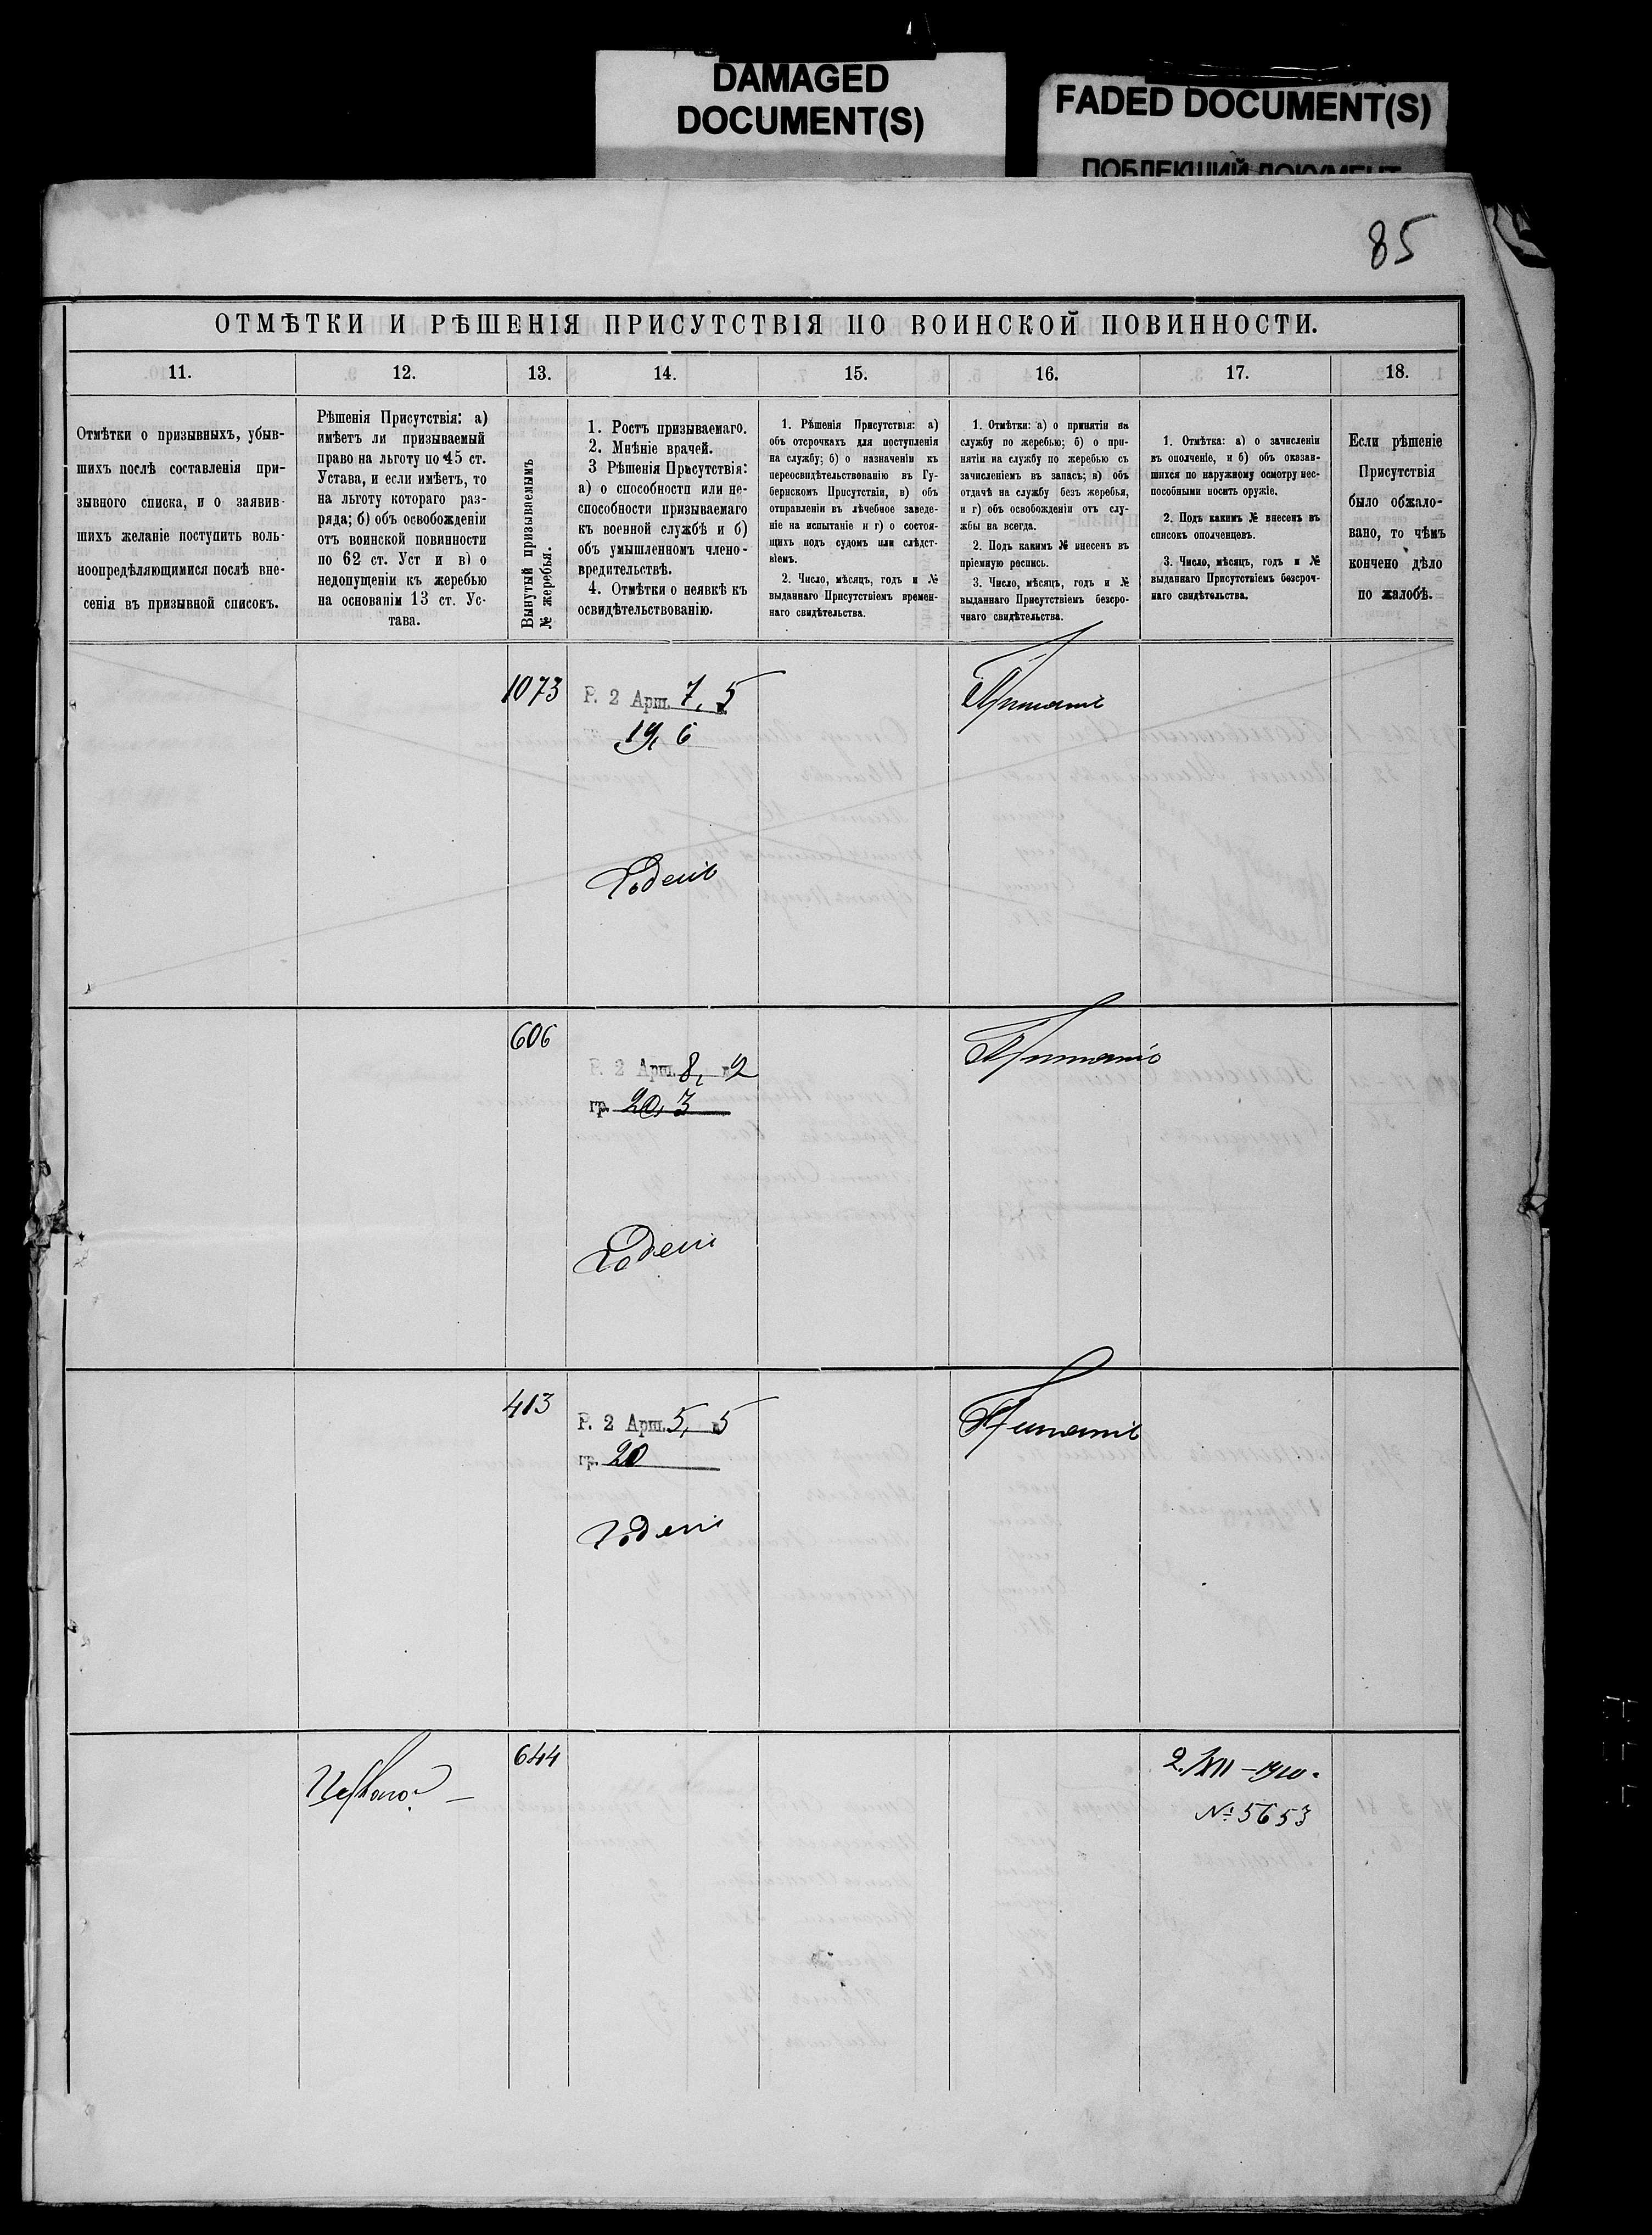 DAMAGED
DOCUMENT(S)
FADED DOCUMENT(S)
ПОБЛЕКШИЙ ДОКУМЕНТ
85
ОТМѢТКИ И РѢШЕНІЯ ПРИСУТСТВІЯ ПО ВОИНСКОЙ ПОВИННОСТИ.
11.
12.
13.
14.
15.
16.
17.
18.
Отмѣтки о призывныхъ, убыв-
шихъ послѣ составленія при-
зывного списка, и о заявив-
шихъ желаніе поступить воль-
ноопредѣляющимися послѣ вне-
сенія въ призывной списокъ.
Рѣшенія Присутствія: а)
имѣетъ ли призываемый
право на льготу по 45 ст.
Устава, и если имѣетъ, то
на льготу котораго раз-
ряда; б) объ освобожденіи
отъ воинской повинности
по 62 ст. Уст и в) о
недопущеніи къ жеребью
на основаніи 13 ст. Ус-
тава.
Вынутый призываемымъ
№ жеребья.
1. Ростъ призываемаго.
2. Мнѣніе врачей.
3 Рѣшенія Присутствія:
а) о способности или не-
способности призываемаго
къ военной службѣ и б)
объ умышленномъ члено-
вредительствѣ.
4. Отмѣтки о неявкѣ къ
освидѣтельствованію.
1. Рѣшенія Присутствія: а)
объ отсрочкахъ для поступленія
на службу; б) о назначеніи къ
переосвидѣтельствованію въ Гу-
бернскомъ Присутствіи, в) объ
отправленіи въ лѣчебное заведе-
ніе на испытаніе и г) о состоя-
щихъ подъ судомъ или слѣдст-
віемъ.
2. Число, мѣсяцъ, годъ и №
выданнаго Присутствіемъ времен-
наго свидѣтельства.
1. Отмѣтки: а) о принятіи на
службу по жеребью; б) о при-
нятіи на службу по жеребью съ
зачисленіемъ въ запасъ; в) объ
отдачѣ на службу безъ жеребья,
и г) объ освобожденіи отъ слу-
жбы на всегда.
2. Подъ какимъ № внесенъ въ
пріемную роспись.
3. Число, мѣсяцъ, годъ и №
выданнаго Присутствіемъ безсро-
чнаго свидѣтельства.
1. Отмѣтка: а) о зачисленіи
въ ополченіе, и б) объ оказав-
шихся по наружному осмотру нес-
пособными носить оружіе.
2. Подъ какимъ № внесенъ въ
списокъ ополченцевъ.
3. Число, мѣсяцъ, годъ и №
выданнаго Присутствіемъ безсроч-
наго свидѣтельства.
Если рѣшеніе
Присутствія
было обжало-
вано, то чѣмъ
кончено дѣло
по жалобѣ.
1073
Р. 2 Арш. 7, 5
19, 6
Годенъ
Принятъ
606
Р. 2 Арш. 8, 2
гр. 20, 3
Годенъ
Принятъ
413
Р. 2 Арш. 5, 5
гр. 20
Годенъ
Принятъ
644
2.XII-1910.
№ 5653